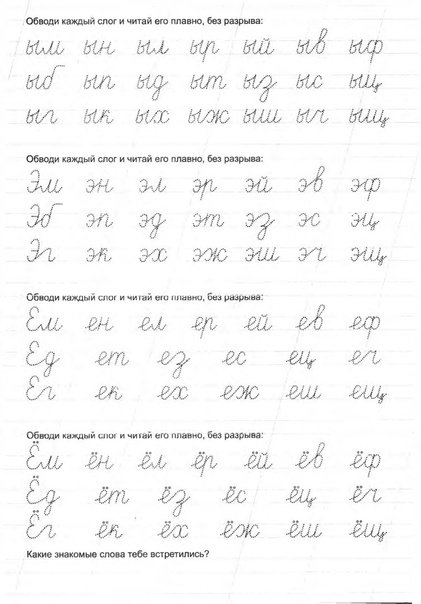 Обводи каждый слог и читай его плавно, без разрыва:
ым ын ыл ыр ый ыв ыф
ыб ып ыд ыт ыз ыс ыщ
ыг ык ых ыж ыш ыч ыщ
Обводи каждый слог и читай его плавно, без разрыва:
Эм эн эл эр эй эв эф
Эб эп эд эт эз эс эц
Эг эк эх эж эш эч эщ
Обводи каждый слог и читай его плавно, без разрыва:
Ем ен ел ер ей ев еф
Ед ет ез ес ец еч
Ег ек ех еж еш ещ
Обводи каждый слог и читай его плавно, без разрыва:
Ём ён ёл ёр ёй ёв ёф
Ёд ёт ёз ёс ёц ёч
Ёг ёк ёх ёж ёш ёщ
Какие знакомые слова тебе встретились?